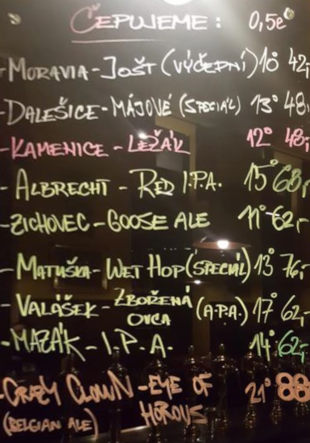 ČEPUJEME: 0,5ℓ
-MORAVIA-JOŠT (VÝČEPNÍ) 10° 42,-
-DALEŠICE-MÁJOVÉ (SPECIÁL) 13° 48,-
-KAMENICE-LEŽÁK 12° 48,-
-ALBRECHT-RED I.P.A. 15° 68,-
-ZICHOVEC-GOOSE ALE 11° 62,-
-MATUŠKA-WET HOP (SPECIÁL) 13° 76,-
-VALÁŠEK-ZBOŽENÁ OVCA (A.P.A.) 17° 62,-
-MAZÁK-I.P.A. 14° 62,-
-CRAZY CLOWN-EYE OF HÓROUS 21° 88
(BELGIAN ALE)